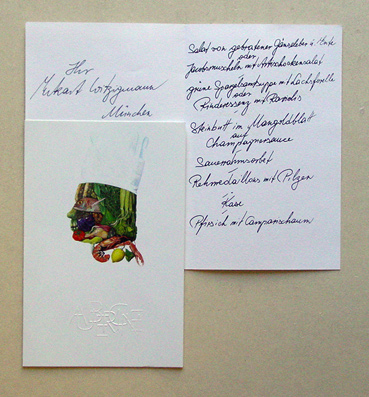 Ihr
Eckart Witzigmann
München
Salat von gebratener Gänseleber u. Ente
oder
Jacobsmuscheln mit Artischockensalat
grüne Spargelsamtsuppe mit Lachsforelle
oder
Rinderessenz mit Raviolis
Steinbutt im Mangoldblatt
auf
Champagnersauce
Sauerrahmsorbet
Rehmedaillons mit Pilzen
Käse
Pfirsich mit Camparischaum